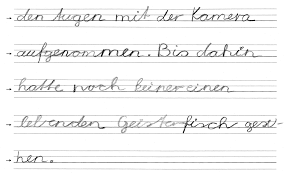 den Augen mit der Kamera
aufgenommen. Bis dahin
hatte noch keiner einen
lebenden Geisterfisch gese-
hen.